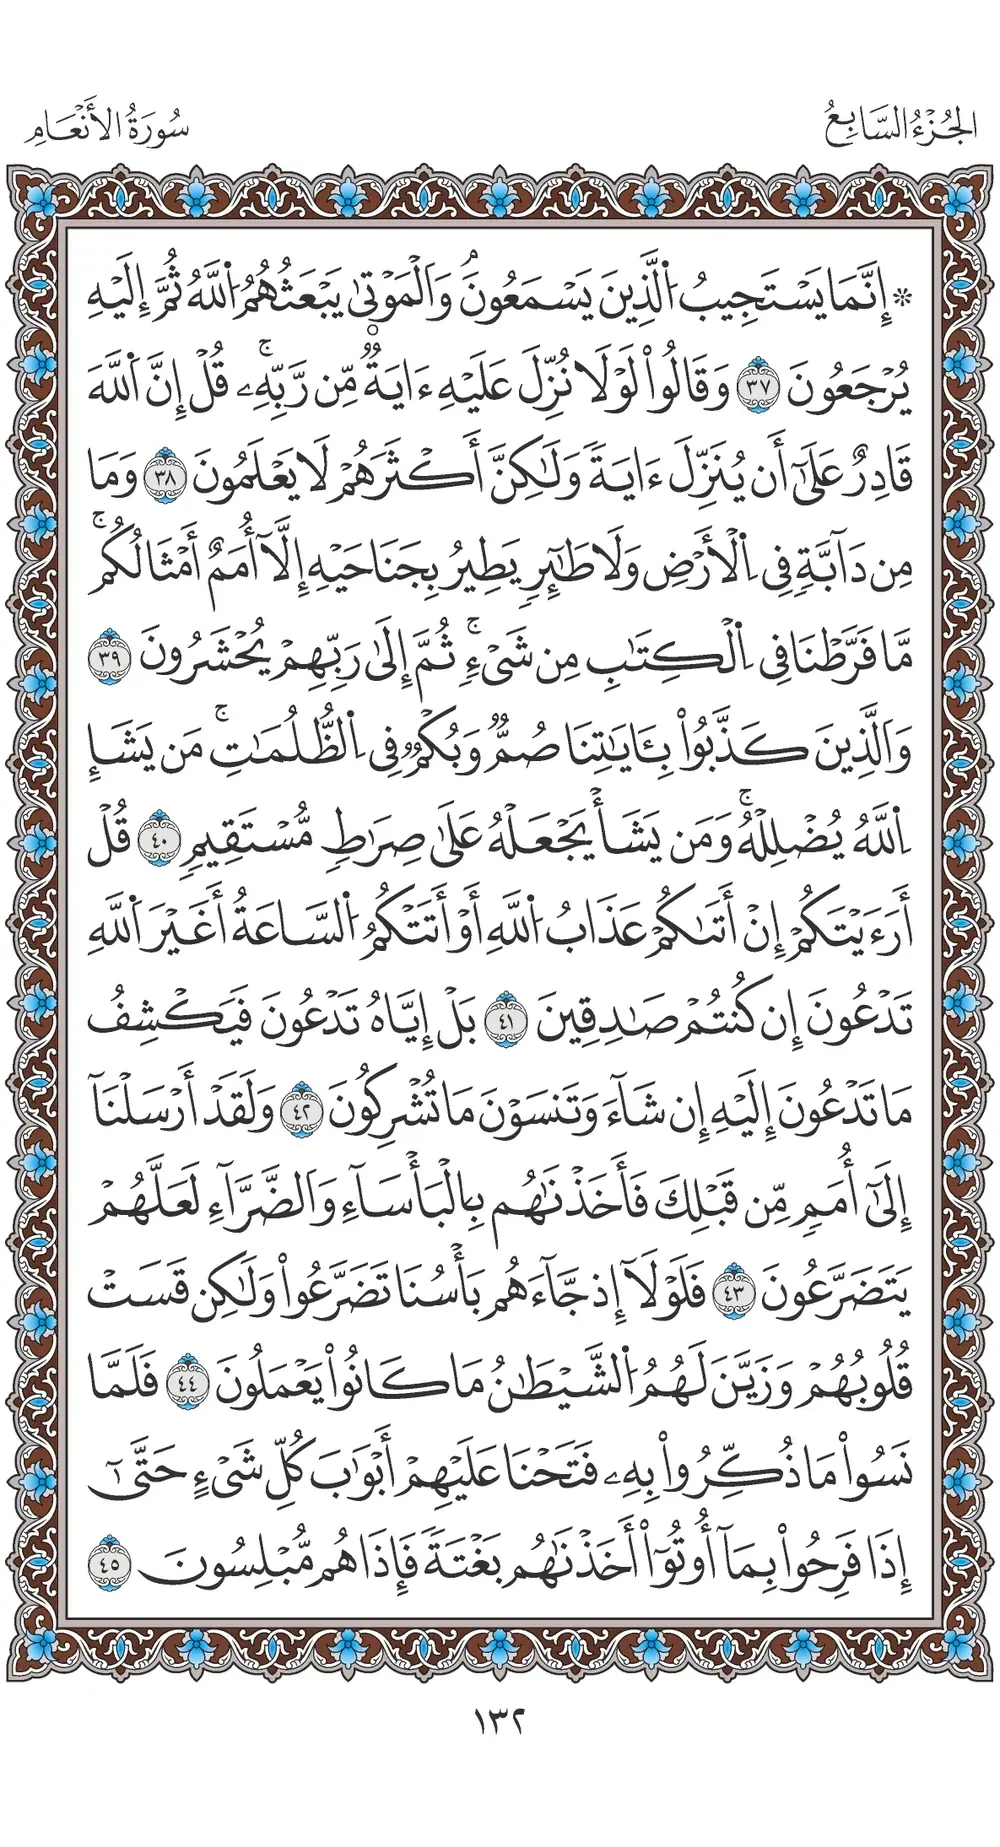 الجزء السابع
سورة الأنعام
* إِنَّمَا يَسْتَجِيبُ اُ۬لَّذِينَ يَسْمَعُونَۘ وَالْمَوْت۪ىٰ يَبْعَثُهُمُ اُ۬للَّهُ ثُمَّ إِلَيْهِ
يُرْجَعُونَ ٣٧ وَقَالُواْ لَوْلَا نُزِّلَ عَلَيْهِ ءَايَةٌ مِّن رَّبِّهِۦۚ قُلْ إِنَّ اَ۬للَّهَ
قَادِرٌ عَلَىٰٓ أَن يُنَزِّلَ ءَايَةً وَلَٰكِنَّ أَكْثَرَهُمْ لَا يَعْلَمُونَ ٣٨ وَمَا
مِن دَآبَّةٍ فِي اِ۬لْأَرْضِ وَلَا طَٰٓئِرٍ يَطِيرُ بِجَنَاحَيْهِ إِلَّآ أُمَمٌ أَمْثَالُكُمۚ
مَّا فَرَّطْنَا فِي اِ۬لْكِتَٰبِ مِن شَيْءٍۚ ثُمَّ إِلَىٰ رَبِّهِمْ يُحْشَرُونَ ٣٩
وَالَّذِينَ كَذَّبُواْ بِـَٔايَٰتِنَا صُمٌّ وَبُكْمٌ فِي اِ۬لظُّلُمَٰتِۚ مَن يَشَإِ
اِ۬للَّهُ يُضْلِلْهُۚ وَمَن يَشَأْ يَجْعَلْهُ عَلَىٰ صِرَٰطٍ مُّسْتَقِيمٍ ٤٠ قُلْ
أَرَءَيْتَكُمْ إِنْ أَتَىٰكُمْ عَذَابُ اُ۬للَّهِ أَوْ أَتَتْكُمُ اُ۬لسَّاعَةُ أَغَيْرَ اَ۬للَّهِ
تَدْعُونَ إِن كُنتُمْ صَٰدِقِينَ ٤١ بَلْ إِيَّاهُ تَدْعُونَ فَيَكْشِفُ
مَا تَدْعُونَ إِلَيْهِ إِن شَآءَ وَتَنسَوْنَ مَا تُشْرِكُونَ ٤٢ وَلَقَدْ أَرْسَلْنَآ
إِلَىٰٓ أُمَمٍ مِّن قَبْلِكَ فَأَخَذْنَٰهُم بِالْبَأْسَآءِ وَالضَّرَّآءِ لَعَلَّهُمْ
يَتَضَرَّعُونَ ٤٣ فَلَوْلَآ إِذ جَّآءَهُم بَأْسُنَا تَضَرَّعُواْ وَلَٰكِن قَسَتْ
قُلُوبُهُمْ وَزَيَّنَ لَهُمُ اُ۬لشَّيْطَٰنُ مَا كَانُواْ يَعْمَلُونَ ٤٤ فَلَمَّا
نَسُواْ مَا ذُكِّرُواْ بِهِۦ فَتَحْنَا عَلَيْهِمْ أَبْوَٰبَ كُلِّ شَيْءٍ حَتَّىٰٓ
إِذَا فَرِحُواْ بِمَآ أُوتُوٓاْ أَخَذْنَٰهُم بَغْتَةً فَإِذَا هُم مُّبْلِسُونَ ٤٥
١٣٢